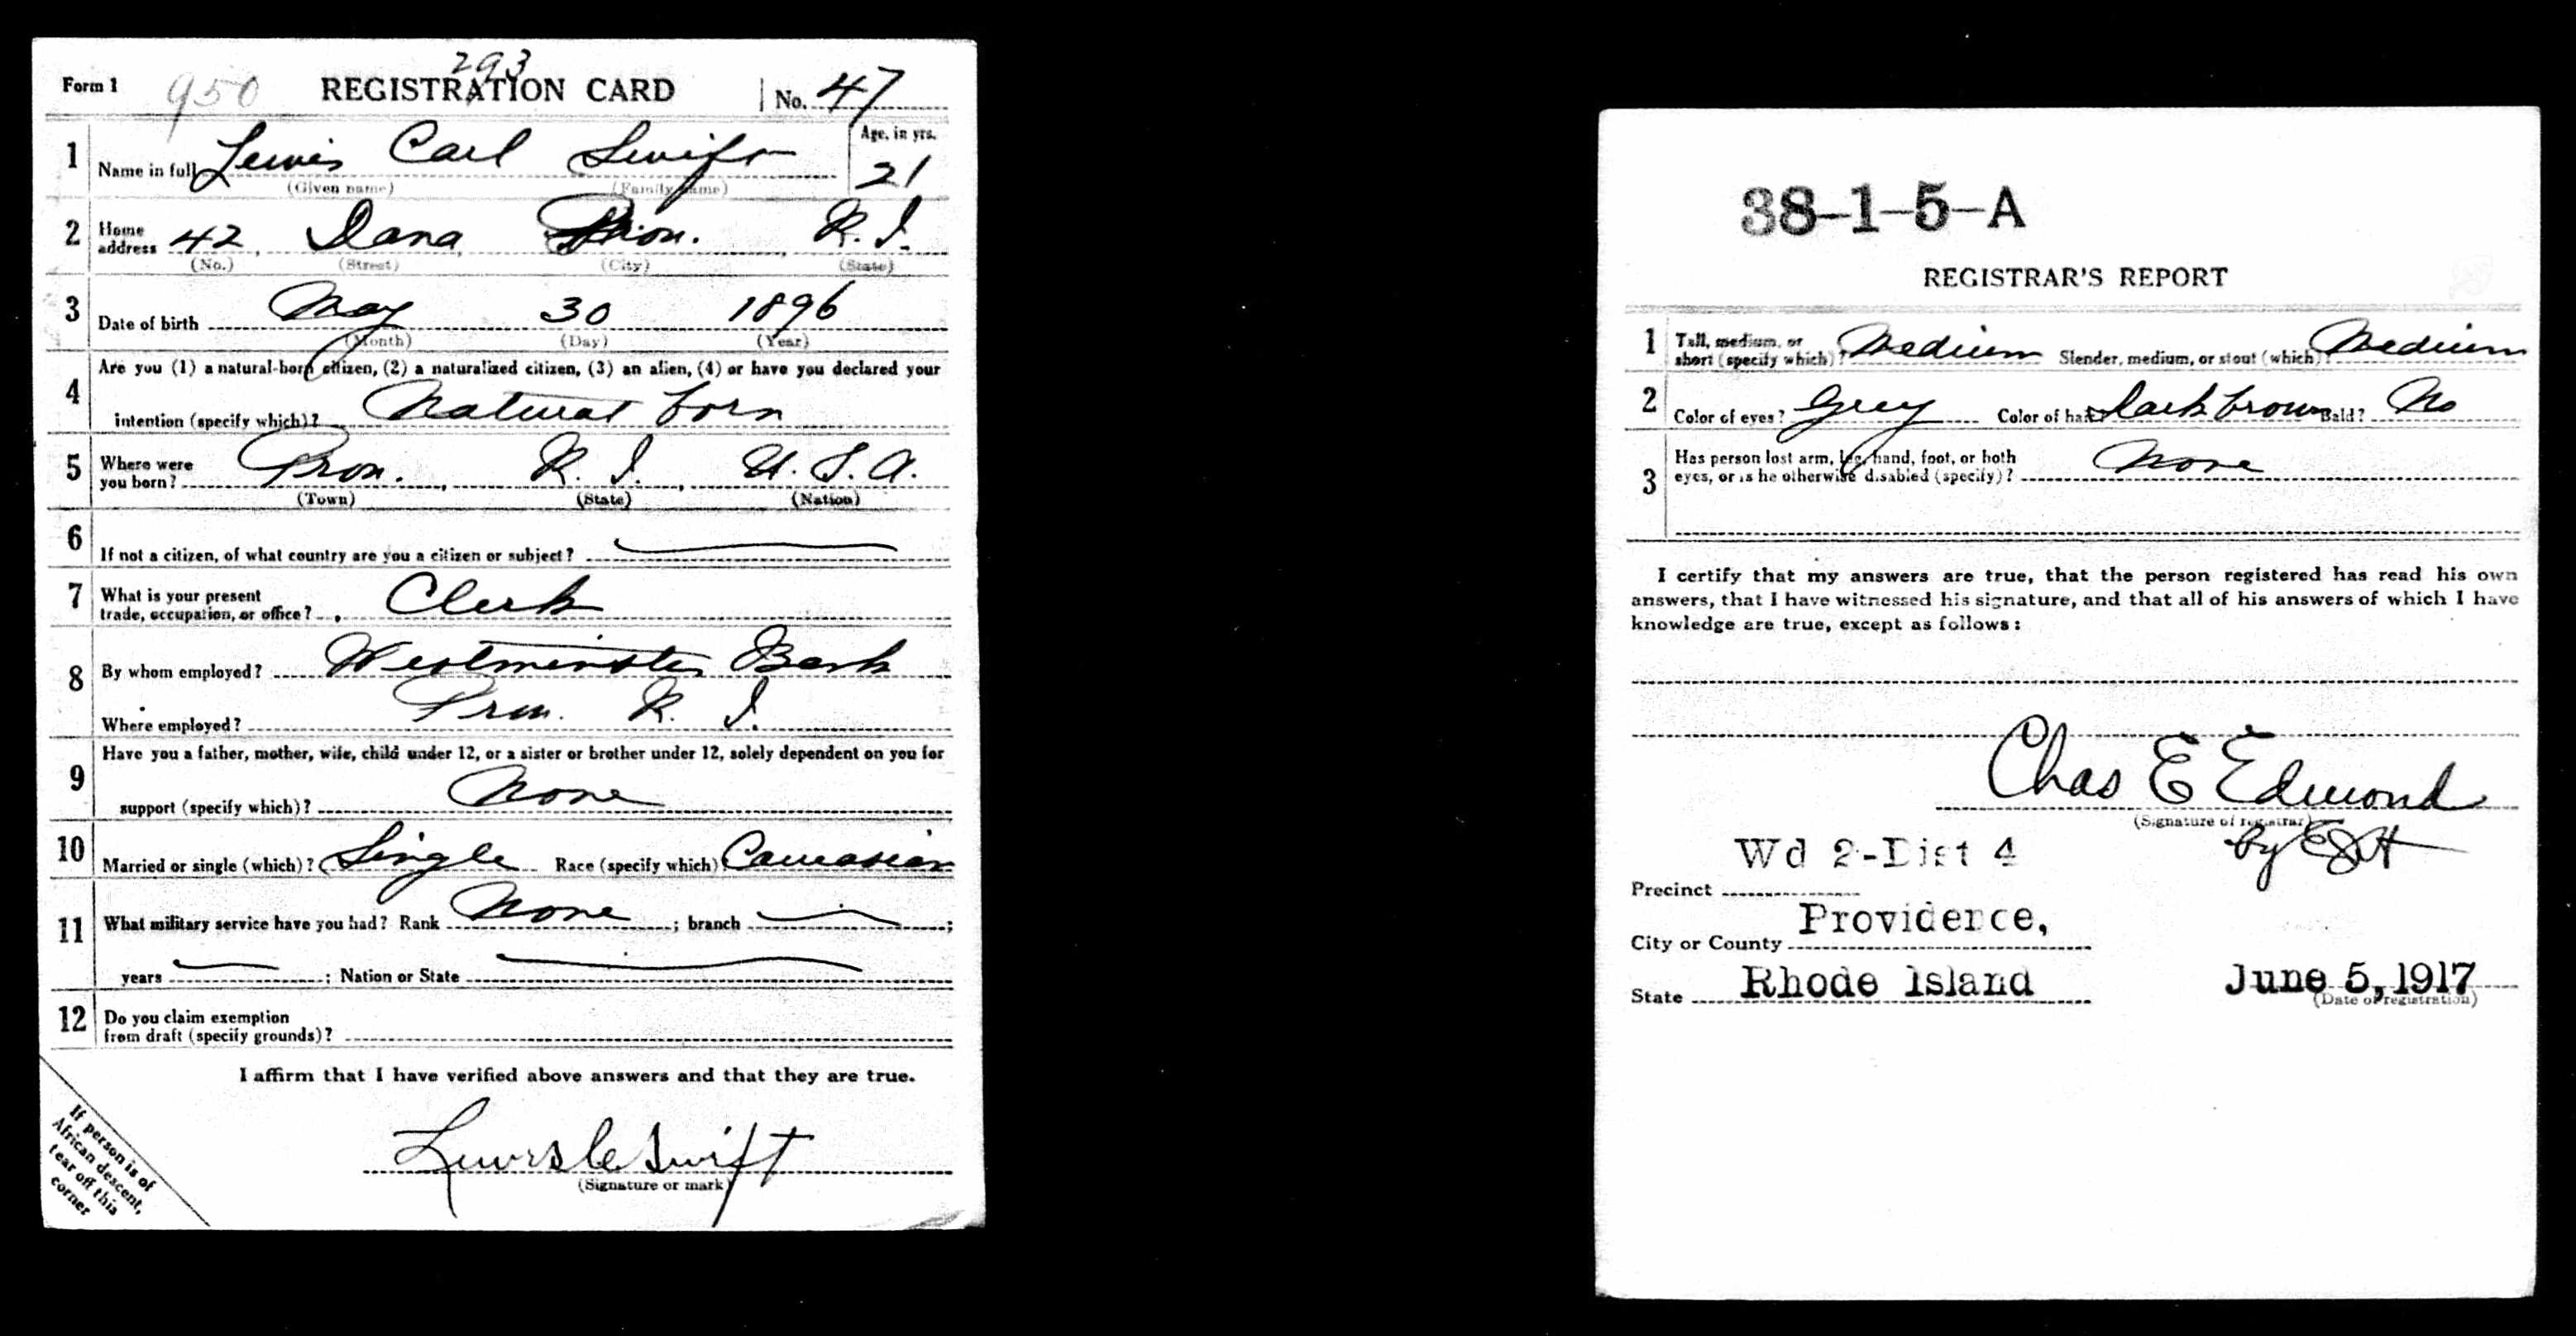 293
Form 1 950 REGISTRATION CARD No. 47
1 Name in full Lewis Carl Swift Age, in yrs. 21
(Given name) (Family name)
2 Home address 42 Dana Prov. R. I.
(No.) (Street) (City) (State)
3 Date of birth May 30 1896
(Month) (Day) (Year)
4 Are you (1) a natural-born citizen, (2) a naturalized citizen, (3) an alien, (4) or have you declared your
intention (specify which)? Natural born
5 Where were you born? Prov. R. I. U. S. A.
(Town) (State) (Nation)
6 If not a citizen, of what country are you a citizen or subject?
7 What is your present trade, occupation, or office? Clerk
8 By whom employed? Westminster Bank
Where employed? Prov. R. I.
9 Have you a father, mother, wife, child under 12, or a sister or brother under 12, solely dependent on you for
support (specify which)? None
10 Married or single (which)? Single Race (specify which) Caucasian
11 What military service have you had? Rank None ; branch ;
years ; Nation or State
12 Do you claim exemption
from draft (specify grounds)?
I affirm that I have verified above answers and that they are true.
Lewis C Swift
(Signature or mark)
If person is of
African descent,
tear off this
corner
38-1-5-A
REGISTRAR'S REPORT
1 Tall, medium, or short (specify which)? Medium Slender, medium, or stout (which)? Medium
2 Color of eyes? Grey Color of hair? Dark brown Bald? No
3 Has person lost arm, leg, hand, foot, or both
eyes, or is he otherwise disabled (specify)? None
I certify that my answers are true, that the person registered has read his own
answers, that I have witnessed his signature, and that all of his answers of which I have
knowledge are true, except as follows:
Chas E Edmond
(Signature of registrar)
by
Wd 2-Dist 4
Precinct
City or County Providence,
State Rhode Island June 5, 1917
(Date of registration)